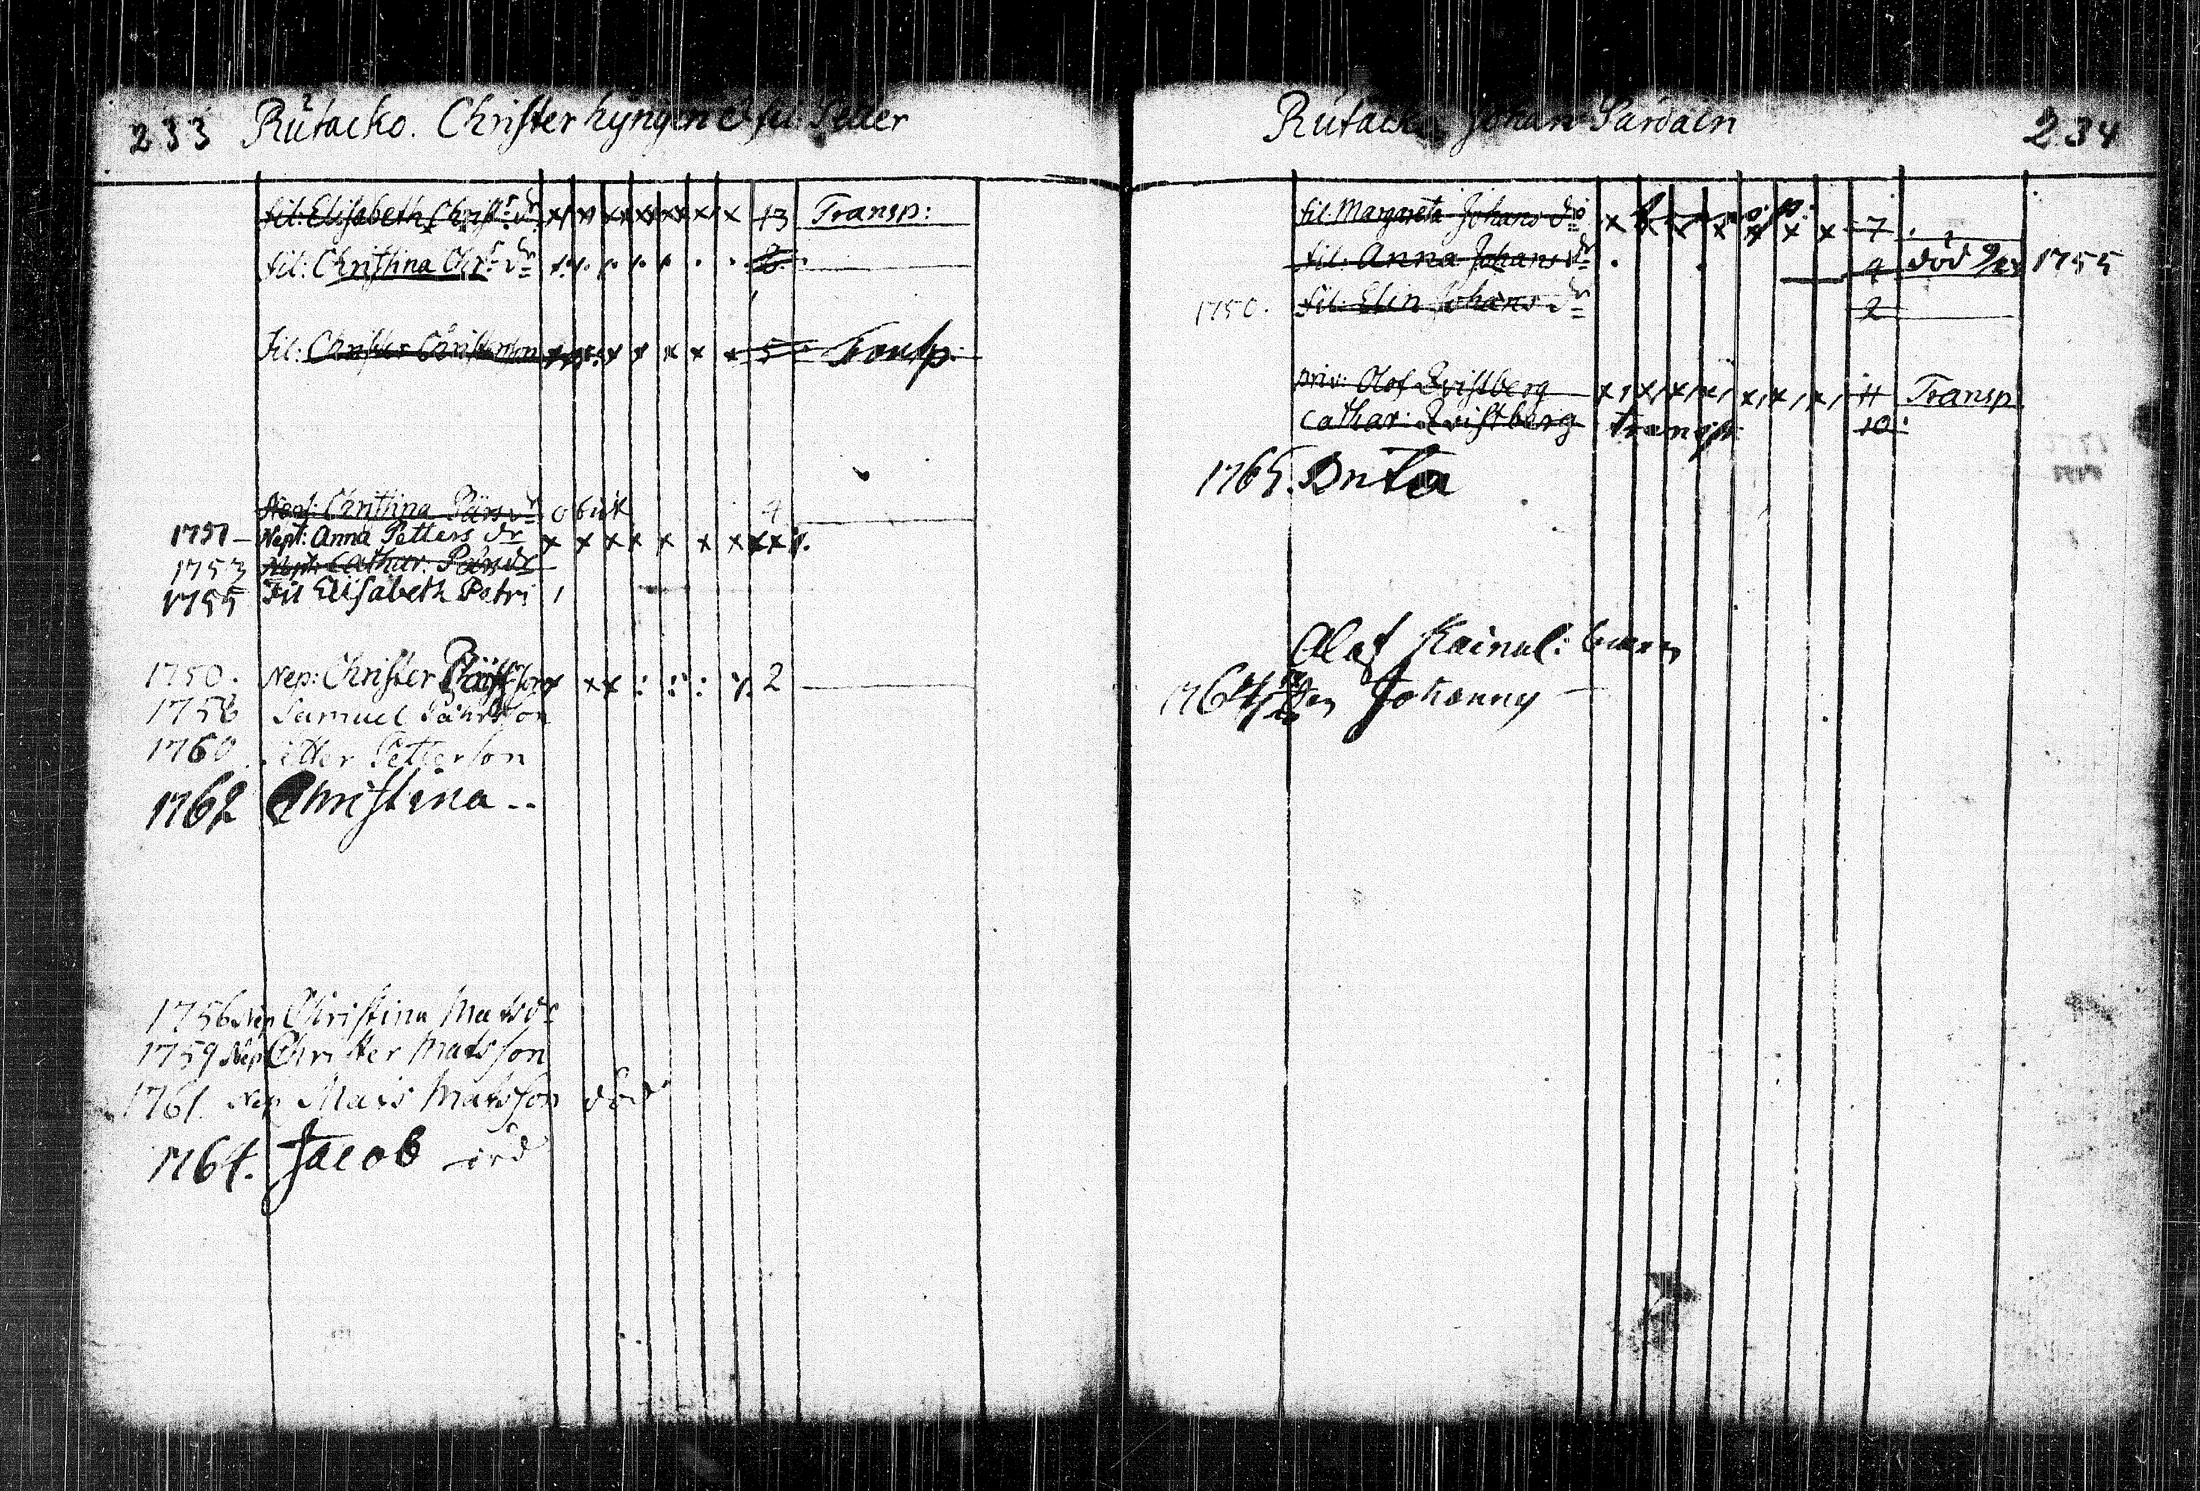 233 Rutacko. Christer hyngen et fil: Peder
fil: Elisabeth Christ: dr x x x x x x x 13 Transp:
fil: Christina Chr: dr 8
fil: Christer Christersson x x x x 5 Transp.
Nept: Christina Pärs dr obiit 4
1751 Nept: Anna Petters dr x x x x x x x x x
1753 Nept: Cathar: Pärs dr
1755 Fil Elisabeth Petri
1750. Nep: Christer x x 2
1758 Samuel Pährsson
1760 Petter Petterson
1762 Christina
1756 Nep Christina Mats dr
1759 Nep Christer Matsson
1761. Nep Mats Matsson död
1764. Jacob död
Rutacko Johan 234
fil: Margareta Johans dr x x x x x x x 7
fil: Anna Johans dr 4 död 1755
1750. fil: Elin Johans dr 2
priv: Olof Qvistberg x x x x x x x 11 Transp
Cathar: Qvistberg transp 10
1765. Brita
Olof Kainul:
1764 Johanny